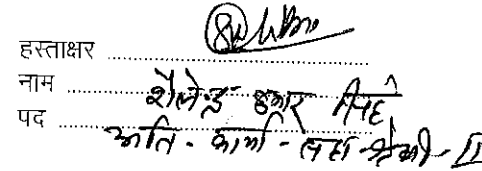 हस्ताक्षर ..............................
नाम शैलेन्द्र कुमार सिंह
पद अति - कार्या - सहा - श्रेणी - II